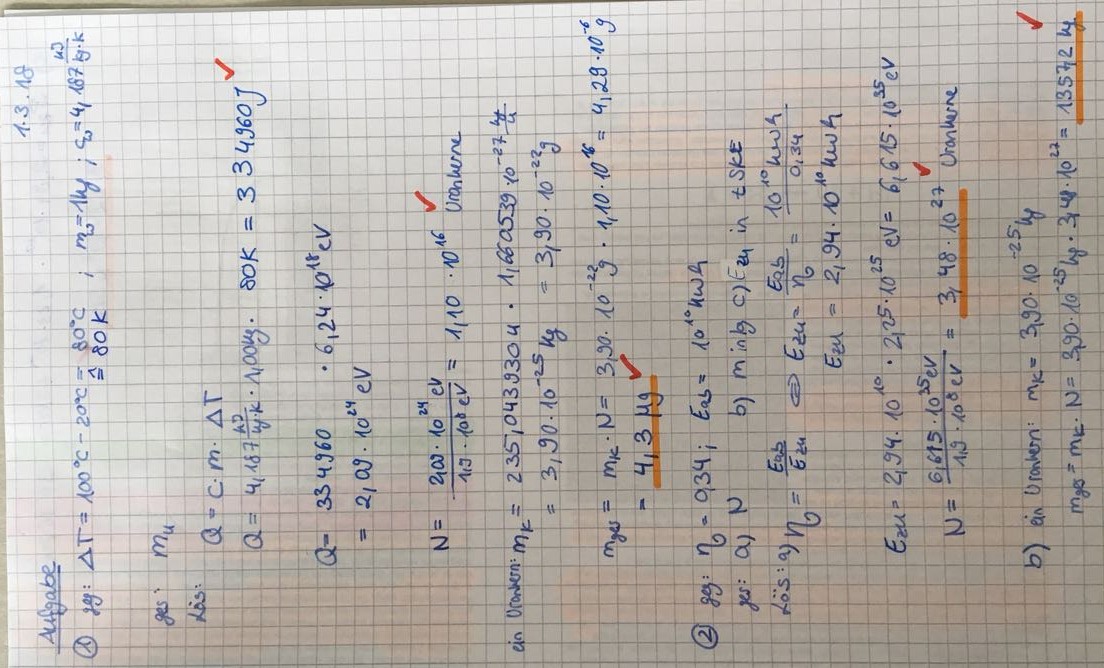 1.3.18
Aufgabe
① geg: ΔT = 100°C - 20°C = 80°C ; m_w = 1kg ; c_w = 4,187 kJ/kg·K
≙ 80K
ges: m_u
Lös: Q = c · m · ΔT
Q = 4,187 kJ/kg·K · 1,00kg · 80K = 334960J ✓
Q = 334960 · 6,24 · 10^18 eV
= 2,09 · 10^24 eV
N = 2,09 · 10^24 eV / 1,9 · 10^8 eV = 1,10 · 10^16 Urankerne ✓
ein Urankern: m_K = 235,0439304 · 1,660539 · 10^-27 kg/u
= 3,90 · 10^-25 kg = 3,90 · 10^-22 g
m_ges = m_K · N = 3,90 · 10^-22 g · 1,10 · 10^16 = 4,29 · 10^-6 g
= 4,3 µg ✓
② geg: η = 0,34 ; E_ab = 10^10 kWh
ges: a) N b) m in kg c) E_zu in t SKE
Lös: a) η = E_ab / E_zu ⇔ E_zu = E_ab / η = 10^10 kWh / 0,34
E_zu = 2,94 · 10^10 kWh
E_zu = 2,94 · 10^10 · 2,25 · 10^25 eV = 6,615 · 10^35 eV
N = 6,615 · 10^35 eV / 1,9 · 10^8 eV = 3,48 · 10^27 Urankerne ✓
b) ein Urankern: m_K = 3,90 · 10^-25 kg
m_ges = m_K · N = 3,90 · 10^-25 kg · 3,48 · 10^27 = 1357,2 kg ✓